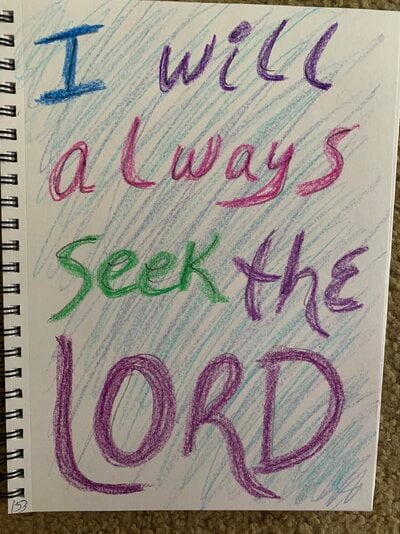 I will
always
seek the
LORD
153